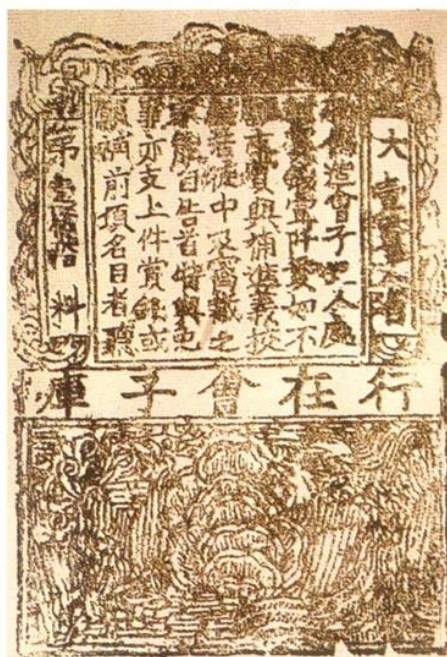 大壹貫文省
造會子犯人處
賞錢壹阡貫如不
願支賞與補進義校
尉若徒中及窩藏之
家能自告首特與免
罪亦支上件賞錢或
願補前項名目者聽
第壹拾料
行在會子庫